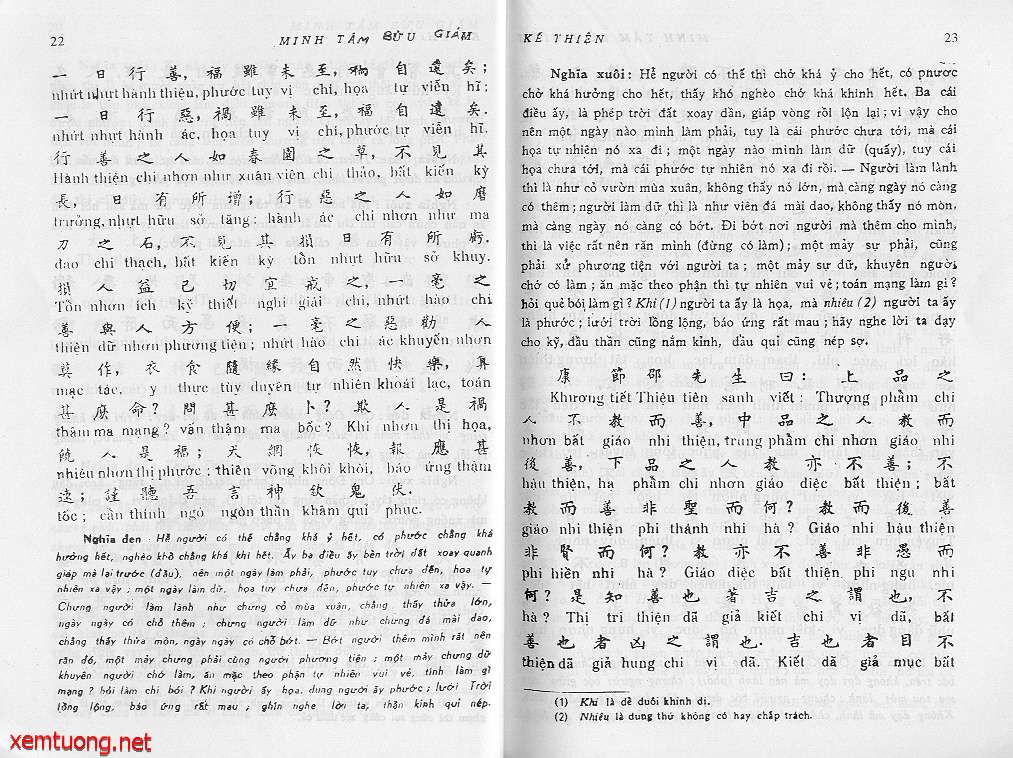 22
MINH TÂM BỬU GIÁM
一 日 行 善, 福 雖 未 至, 禍 自 遠 矣;
nhứt nhựt hành thiện, phước tuy vị chí, họa tự viễn hĩ;
一 日 行 惡, 禍 雖 未 至, 福 自 遠 矣.
nhứt nhựt hành ác, họa tuy vị chí, phước tự viễn hĩ.
行 善 之 人 如 春 園 之 草, 不 見 其
Hành thiện chi nhơn như xuân viên chi thảo, bất kiến kỳ
長, 日 有 所 增; 行 惡 之 人 如 磨
trưởng, nhựt hữu sở tăng; hành ác chi nhơn như ma
刀 之 石, 不 見 其 損 日 有 所 虧.
đao chi thạch, bất kiến kỳ tổn nhựt hữu sở khuy.
損 人 益 己 切 宜 戒 之, 一 毫 之
Tổn nhơn ích kỷ thiết nghi giái chi, nhứt hào chi
善 與 人 方 便; 一 毫 之 惡 勸 人
thiện dữ nhơn phương tiện; nhứt hào chi ác khuyến nhơn
莫 作, 衣 食 隨 緣 自 然 快 樂, 算
mạc tác, y thực tùy duyên tự nhiên khoái lạc, toán
甚 麽 命? 問 甚 麽 卜? 欺 人 是 禍
thậm ma mạng? vấn thậm ma bốc? Khi nhơn thị họa,
饒 人 是 福; 天 網 恢 恢, 報 應 甚
nhiêu nhơn thị phước; thiên võng khôi khôi, báo ứng thậm
速; 謹 聽 吾 言 神 欽 鬼 伏.
tốc; cẩn thính ngô ngôn thần khâm quỉ phục.
Nghĩa đen - Hễ người có thế chẳng khá ỷ hết, có phước chẳng khá
hưởng hết, nghèo khổ chẳng khá khi hết. Ấy ba điều ấy bèn trời đất xoay quanh
giáp mà lại trước (đầu), nên một ngày làm phải, phước tuy chưa đến, họa tự
nhiên xa vậy; một ngày làm dữ, họa tuy chưa đến, phước tự nhiên xa vậy. —
Chưng người làm lành như chưng cỏ mùa xuân, chẳng thấy thửa lớn,
ngày ngày có chỗ thêm; chưng người làm dữ như chưng đá mài dao,
chẳng thấy thửa mòn, ngày ngày có chỗ bớt. — Bớt người thêm mình rất nên
răn đó, một mảy chưng phải cùng người phương tiện; một mảy chưng dữ
khuyên người chớ làm, ăn mặc theo phận tự nhiên vui vẻ, tính làm gì
mạng? hỏi làm chi bói? Khi người ấy họa, dung người ấy phước; lưới Trời
lồng lộng, báo ứng rất mau; ghín nghe lời ta, thần kinh quỉ nép.
xemtuong.net
KẾ THIỆN
23
Nghĩa xuôi: Hễ người có thế thì chớ khá ỷ cho hết, có phước
chớ khá hưởng cho hết, thấy khó nghèo chớ khá khinh hết. Ba cái
điều ấy, là phép trời đất xoay dần, giáp vòng rồi lộn lại; vì vậy cho
nên một ngày nào mình làm phải, tuy là cái phước chưa tới, mà cái
họa tự nhiên nó xa đi; một ngày nào mình làm dữ (quấy), tuy cái
họa chưa tới, mà cái phước tự nhiên nó xa đi rồi. — Người làm lành
thì là như cỏ vườn mùa xuân, không thấy nó lớn, mà càng ngày nó càng
có thêm; người làm dữ thì là như viên đá mài dao, không thấy nó mòn,
mà càng ngày nó càng có bớt. Đi bớt nơi người mà thêm cho mình,
thì là việc rất nên răn mình (đừng có làm); một mảy sự phải, cũng
phải xử phương tiện với người ta; một mảy sự dữ, khuyên người
chớ có làm; ăn mặc theo phận thì tự nhiên vui vẻ; toán mạng làm gì?
hỏi quẻ bói làm gì? Khi (1) người ta ấy là họa, mà nhiêu (2) người ta ấy
là phước; lưới trời lồng lộng, báo ứng rất mau; hãy nghe lời ta dạy
cho kỹ, đầu thần cũng nắm kỉnh, đầu quỉ cũng nép sợ.
康 節 邵 先 生 曰: 上 品 之
Khương tiết Thiệu tiên sanh viết: Thượng phẩm chi
人 不 教 而 善, 中 品 之 人 教 而
nhơn bất giáo nhi thiện, trung phẩm chi nhơn giáo nhi
後 善, 下 品 之 人 教 亦 不 善; 不
hậu thiện, hạ phẩm chi nhơn giáo diệc bất thiện; bất
教 而 善 非 聖 而 何? 教 而 後 善
giáo nhi thiện phi thánh nhi hà? Giáo nhi hậu thiện
非 賢 而 何? 教 亦 不 善 非 愚 而
phi hiền nhi hà? Giáo diệc bất thiện, phi ngu nhi
何? 是 知 善 也 者 吉 之 謂 也, 不
hà? Thị tri thiện dã giả kiết chi vị dã, bất
善 也 者 凶 之 謂 也. 吉 也 者 目 不
thiện dã giả hung chi vị dã. Kiết dã giả mục bất
(1) Khi là dể duôi khinh đi.
(2) Nhiêu là dung thứ không có hay chấp trách.